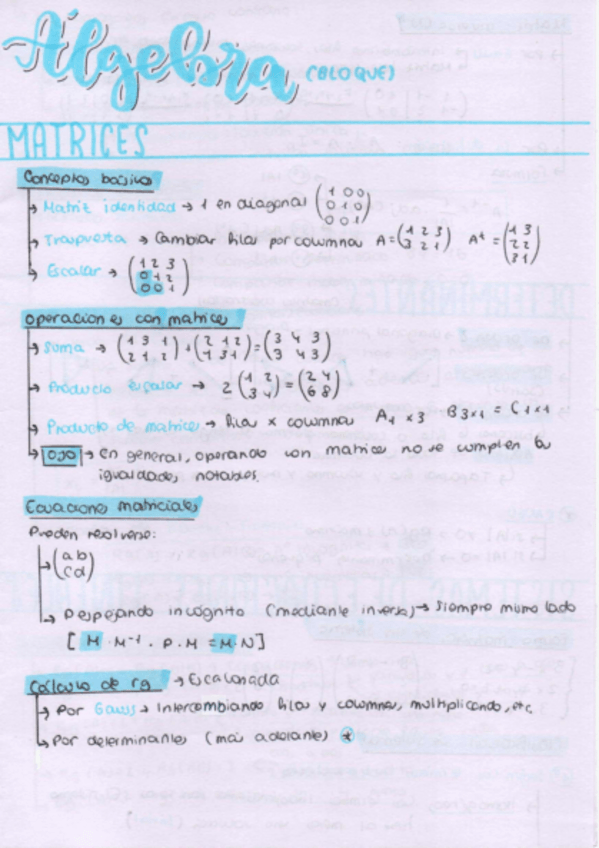 Álgebra (BLOQUE)
MATRICES
Conceptos básicos
↳ Matriz identidad → 1 en diagonal (1 0 0 / 0 1 0 / 0 0 1)
↳ Traspuesta → Cambiar filas por columnas A = (1 2 3 / 3 2 1) Aᵗ = (1 3 / 2 2 / 3 1)
↳ Escalar → (1 2 3 / 0 1 2 / 0 0 1)
Operaciones con matrices
↳ Suma → (1 3 1 / 2 1 2) + (2 1 2 / 1 3 1) = (3 4 3 / 3 4 3)
↳ Producto escalar → 2 (1 2 / 3 4) = (2 4 / 6 8)
↳ Producto de matrices → filas x columnas A₁ₓ₃ B₃ₓ₁ = C₁ₓ₁
↳ OJO → en general, operando con matrices no se cumplen las
igualdades notables.
Ecuaciones matriciales
Pueden resolverse:
↳ (a b / c d)
↳ Despejando incógnita (mediante inversa) → Siempre mismo lado
[M · M⁻¹ · P · M = M · N]
Cálculo de rg → Escalonada
↳ Por Gauss → Intercambiando filas y columnas, multiplicando, etc
↳ Por determinantes (más adelante) *